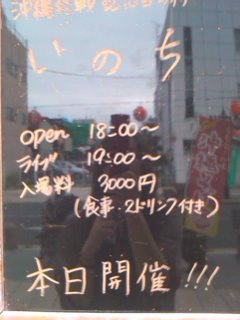 いのち
open 18:00～
ライブ 19:00～
入場料 3000円
(食事・2ドリンク付き)
本日開催!!!